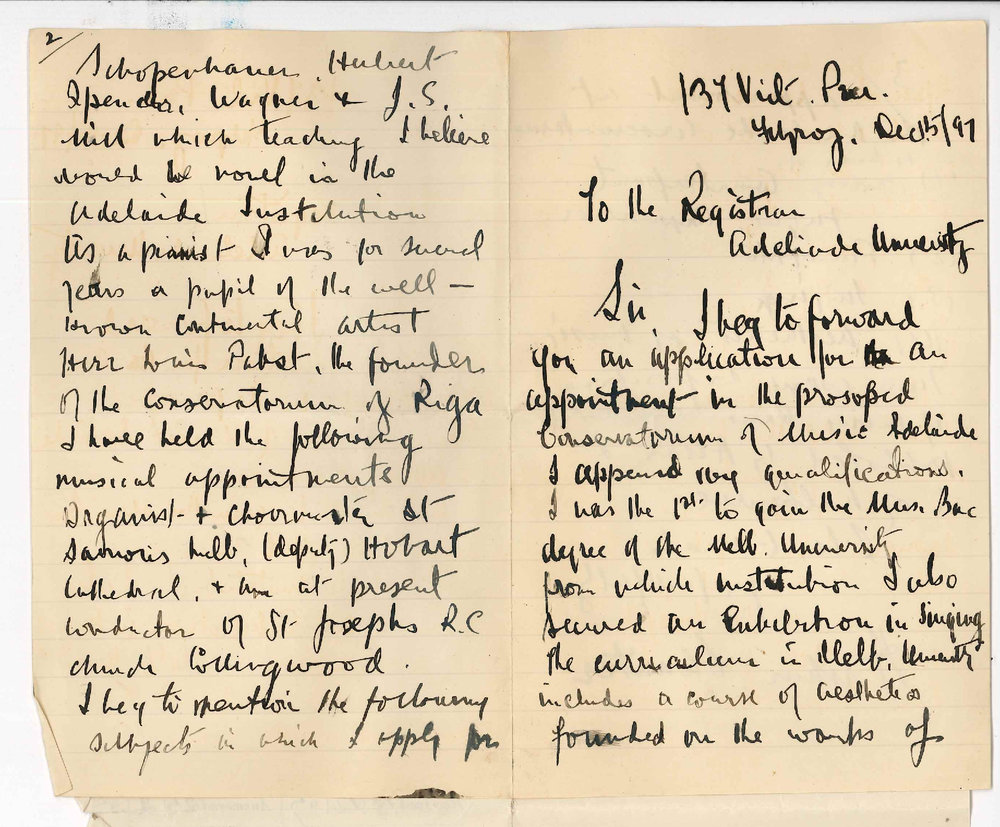 137 Vict. Par.
Fitzroy. Dec 15/97
To the Registrar
Adelaide University
Sir, I beg to forward
you an application for an
appointment in the proposed
Conservatorium of Music Adelaide
I append my qualifications.
I was the 1st to gain the Mus. Bac
degree of the Melb. University
from which institution I also
secured an Exhibition in Singing
the curriculum in Melb. University
includes a course of aesthetics
founded on the works of
2/
Schopenhauer, Herbert
Spencer, Wagner & J.S.
Mill which teaching I believe
would be novel in the
Adelaide Institution
As a pianist I was for several
years a pupil of the well-
known Continental artist
Herr Louis Pabst, the founder
of the Conservatorium of Riga
I have held the following
musical appointments
Organist & choirmaster St
Saviours Melb, (deputy) Hobart
Cathedral, & am at present
conductor of St Josephs R.C
church Collingwood.
I beg to mention the following
subjects in which I apply for